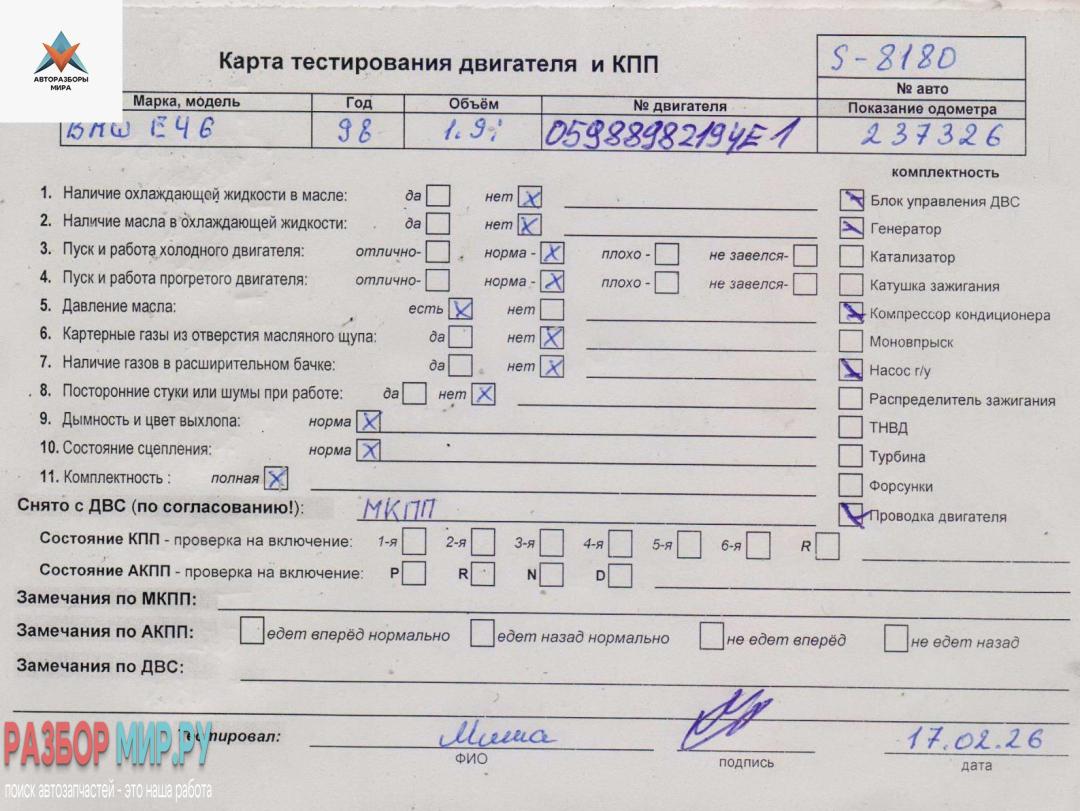 АВТОРАЗБОРЫ
МИРА
Карта тестирования двигателя и КПП
S-8180
№ авто
Марка, модель Год Объём № двигателя Показание одометра
BMW E46 98 1.9i 05988982194E1 237326
комплектность
1. Наличие охлаждающей жидкости в масле: да нет X
Блок управления ДВС
2. Наличие масла в охлаждающей жидкости: да нет X
Генератор
3. Пуск и работа холодного двигателя: отлично- норма - X плохо - не завелся-
Катализатор
4. Пуск и работа прогретого двигателя: отлично- норма - X плохо - не завелся-
Катушка зажигания
5. Давление масла: есть X нет
Компрессор кондиционера
6. Картерные газы из отверстия масляного щупа: да нет X
Моновпрыск
7. Наличие газов в расширительном бачке: да нет X
Насос г/у
8. Посторонние стуки или шумы при работе: да нет X
Распределитель зажигания
9. Дымность и цвет выхлопа: норма X
ТНВД
10. Состояние сцепления: норма X
Турбина
11. Комплектность : полная X
Форсунки
Снято с ДВС (по согласованию!): МКПП
Проводка двигателя
Состояние КПП - проверка на включение: 1-я 2-я 3-я 4-я 5-я 6-я R
Состояние АКПП - проверка на включение: P R N D
Замечания по МКПП:
Замечания по АКПП: едет вперёд нормально едет назад нормально не едет вперёд не едет назад
Замечания по ДВС:
РАЗБОР МИР.РУ
Тестировал: Миша 17.02.26
ФИО подпись дата
поиск автозапчастей - это наша работа